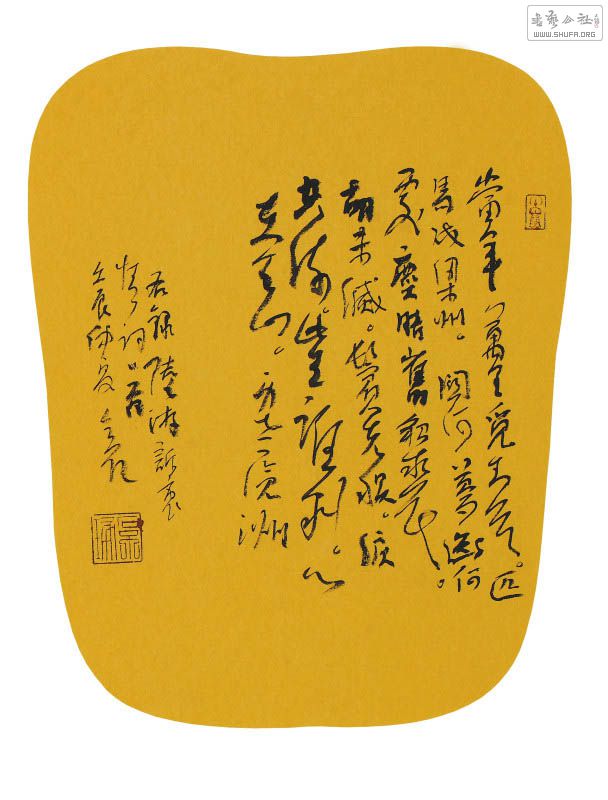 書藝公社
WWW.SHUFA.ORG
當年萬里覓封侯。匹
馬戍梁州。關河夢斷何
處塵暗舊貂裘。
胡未滅。鬢先秋。淚
空流。此生誰料。心
在天山。身老滄洲
右錄陸游訴衷
情詞一首
壬辰仲夏